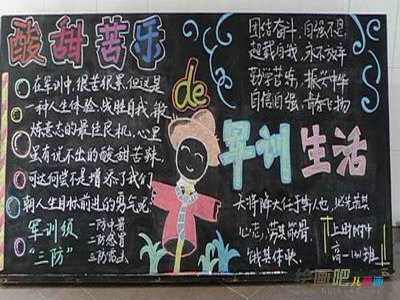 酸甜苦乐
de
军训生活
在军训中，很苦很累，但这是
一种人生体验，战胜自我，锻
炼意志的最佳良机，心里
虽有说不出的酸甜苦辣，
可这何尝不是增添了我们
朝人生目标前进的勇气呢
军训级
“三防”
一防中暑
二防感冒
三防
团结奋斗，自强不息
超越自我，永不放弃
勤学苦练，振兴中华
自信自强，青春飞扬
天将降大任于斯人也，必先苦其
心志，劳其筋骨，
饿其体肤
上财附中
高一
绘画吧儿童画